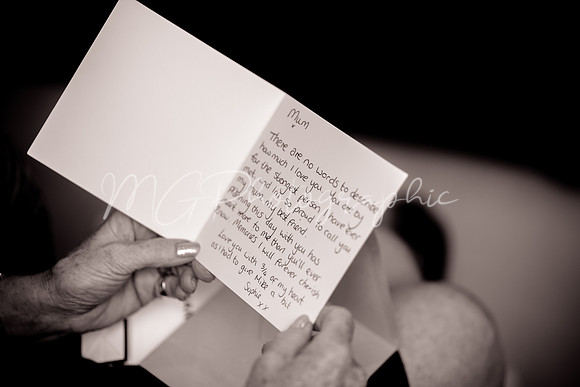 Mum
There are no words to describe
how much I love you. You are by
far the strongest person I have ever
met and I'm so proud to call you
my mum, my best friend.
Planning this day with you has
meant more to me than you'll ever
know. Memories I will forever cherish
Love you with 3/4 of my heart
as I had to give Mike a bit
Sophie
xx
MGPhotographic